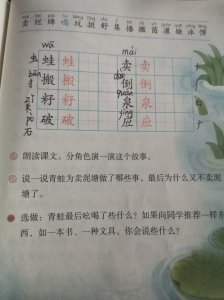 卖 烂 牌 喝 玩 挺 舒 集 播 撒 茵 灌 愉 泳 愣
wā mài
虫 蛙 蛙 卖 卖
bān dǎo
扌 搬 搬 倒 倒
zǐ quán
籽 籽 泉 泉
pò yīng
石 破 破 应 应
朗读课文。分角色演一演这个故事。
说一说青蛙为卖泥塘做了哪些事，最后为什么又不卖泥
塘了。
选做：青蛙最后吆喝了些什么？如果向同学推荐一样东
西，如一本书、一种文具，你会说些什么？